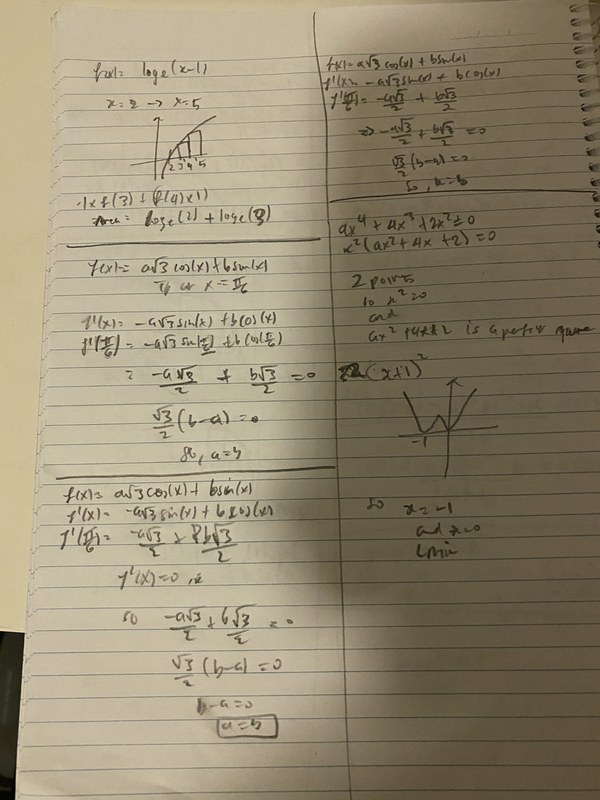 f(x) = loge(x-1)
x=2 → x=5
2 3 4 5
1×f(3) + f(4)×1)
Area = loge(2) + loge(3)
f(x) = a√3 cos(x) + b sin(x)
x = π/6
f'(x) = -a√3 sin(x) + b cos(x)
f'(π/6) = -a√3 sin(π/6) + b cos(π/6)
= -a√3/2 + b√3/2 = 0
√3/2 (b-a) = 0
so, a=b
f(x) = a√3 cos(x) + b sin(x)
f'(x) = -a√3 sin(x) + b cos(x)
f'(π/6) = -a√3/2 + b√3/2
f'(x) = 0
so -a√3/2 + b√3/2 = 0
√3/2 (b-a) = 0
b-a=0
a=b
f(x) = a√3 cos(x) + b sin(x)
f'(x) = -a√3 sin(x) + b cos(x)
f'(π/6) = -a√3/2 + b√3/2
=> -a√3/2 + b√3/2 = 0
√3/2 (b-a) = 0
so, a=b
ax⁴ + 4x³ + 2x² = 0
x²(ax² + 4x + 2) = 0
2 points
so x²=0
and
ax² + 4x + 2 is a perfect square
(x+1)²
-1
so x = -1
and x=0